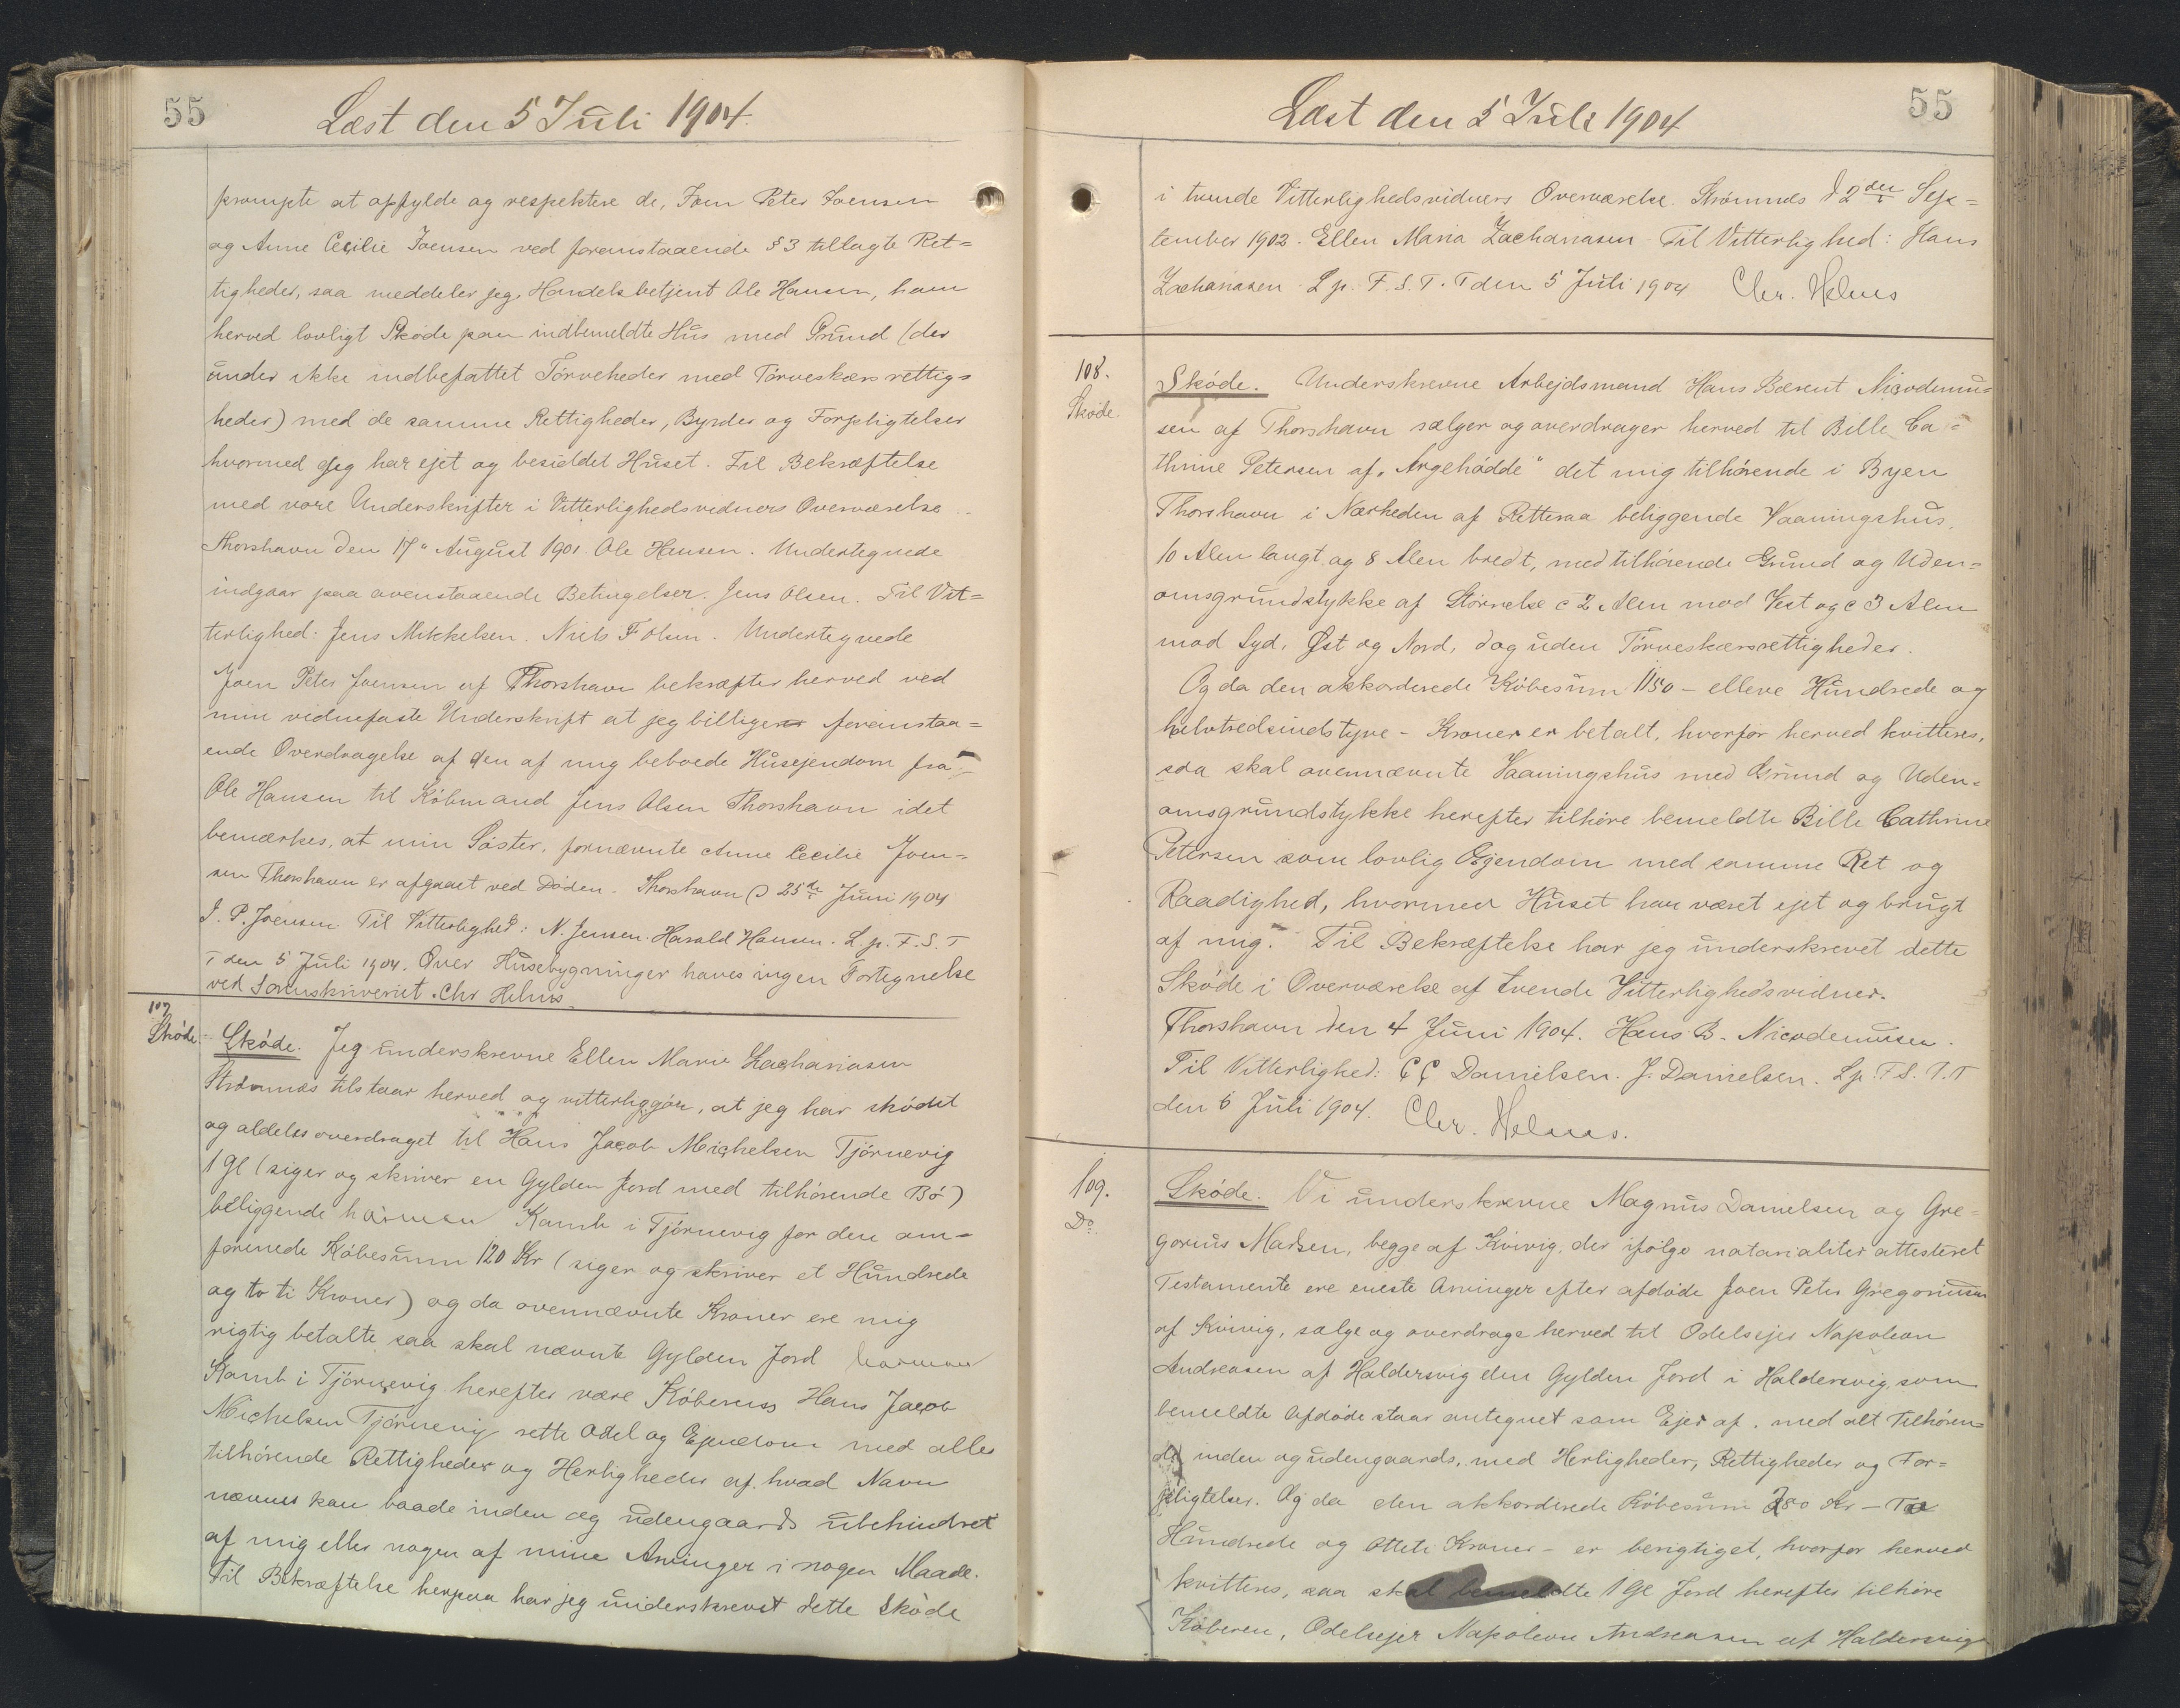 55
Læst den 5 Juli 1904.
prompte at opfylde og respektere de, Joen Peter Joensen
og Anne Cecilie Joensen ved foranstaaende § 3 tillagte Ret=
tigheder, saa meddeler jeg, Handelsbetjent Ole Hansen, ham
herved lovligt Skøde paa indbemeldte Hus med Grund (der
under ikke indbefattet Tørveheder med Tørveskærsrettig=
heder) med de samme Rettigheder, Byrder og Forpligtelser
hvormed jeg har ejet og besiddet Huset. Til Bekræftelse
med vore Underskrifter i Vitterlighedsvidners Overværelse.
Thorshavn den 17" August 1901. Ole Hansen. Undertegnede
indgaar paa ovenstaaende Betingelser. Jens Olsen. Til Vit=
terlighed: Jens Mikkelsen. Niels F Olsen. Undertegnede
Joen Peter Joensen af Thorshavn bekræfter herved ved
min vidnefaste Underskrift at jeg billiger foranstaa=
ende Overdragelse af den af mig beboede Husejendom fra
Ole Hansen til Købmand Jens Olsen Thorshavn idet
bemærkes, at min Søster, fornævnte Anne Cecilie Joen=
sen Thorshavn er afgaaet ved Døden. Thorshavn d 25de Juni 1904
J. P. Joensen Til Vitterlighed: N. Jensen. Harald Hansen. L. p. F. S. T
T den 5 Juli 1904. Over Husebygninger haves ingen Fortegnelse
ved Sorenskriveriet. Chr Helms.
107
Skøde
Skøde. Jeg underskrevne Ellen Marie Zachariasen
Strømnæs tilstaar herved og vitterliggør, at jeg har skødet
og aldeles overdraget til Hans Jacob Michelsen Tjørnevig
1 Gl (siger og skriver en Gylden Jord med tilhørende Bø)
beliggende Kamb i Tjørnevig for den om=
forenede Købesum 120 Kr (siger og skriver et Hundrede
og to ti Kroner) og da ovennævnte Kroner ere mig
rigtig betalte, saa skal nævnte Gylden Jord
Kamb i Tjørnevig herefter være Køberens Hans Jacob
Michelsen Tjørnevig rette Odel og Ejendom med alle
tilhørende Rettigheder og Herligheder af hvad Navn
nævnes kan baade inden og udengaards ubehindret
af mig eller nogen af mine Arvinger i nogen Maade.
Til Bekræftelse herpaa har jeg underskrevet dette Skøde
55
Læst den 5 Juli 1904
i tvende Vitterlighedsvidners Overværelse. Strømnæs d 2den Sep=
tember 1902. Ellen Maria Zachariasen. Til Vitterlighed: Hans
Zachariasen. L. p. F. S. T. T den 5 Juli 1904 Chr. Helms
108.
Skøde.
Skøde. Underskrevne Arbejdsmand Hans Bærent Nicodemu=
sen af Thorshavn sælger og overdrager herved til Bille Ca=
thrine Petersen af "Argehødde" det mig tilhørende i Byen
Thorshavn i Nærheden af Rættesaa beliggende Vaaningshus,
10 Alen langt og 8 Alen bredt, med tilhørende Grund og Uden=
omsgrundstykke af Størrelse c 2 Alen mod Vest og c 3 Alen
mod Syd, Øst og Nord, dog uden Tørveskærsrettigheder.
Og da den akkorderede Købesum 1150 - elleve Hundrede og
halvtredsindstyve - Kroner er betalt, hvorfor herved kvitteres,
saa skal ovennævnte Vaaningshus med Grund og Uden=
omsgrundstykke herefter tilhøre bemeldte Bille Cathrine
Petersen som lovlig Ejendom med samme Ret og
Raadighed, hvormed Huset har været ejet og brugt
af mig. Til Bekræftelse har jeg underskrevet dette
Skøde i Overværelse af tvende Vitterlighedsvidner.
Thorshavn den 4 Juni 1904. Hans B. Nicodemusen.
Til Vitterlighed: Danielsen. J. Danielsen. L. p. F. S. T. T
den 5 Juli 1904. Chr. Helms.
109.
Do
Skøde. Vi underskrevne Magnus Danielsen og Gre=
gorius Madsen, begge af Kvivig, der ifølge notarialiter attesteret
Testamente ere eneste Arvinger efter afdøde Joen Peter Gregoriussen
af Kvivig, sælge og overdrage herved til Odelsejer Napoleon
Andreasen af Haldersvig den Gylden Jord i Haldersvig, som
bemeldte Afdøde staar antegnet som Ejer af, med alt Tilhøren=
de inden og udengaards, med Herligheder, Rettigheder og For=
pligtelser. Og da den akkorderede Købesum 280 Kr - To
Hundrede og Otteti Kroner - er berigtiget, hvorfor herved
kvitteres, saa skal bemeldte 1 Gl Jord herefter tilhøre
Køberen, Odelsejer Napoleon Andreasen af Haldersvig